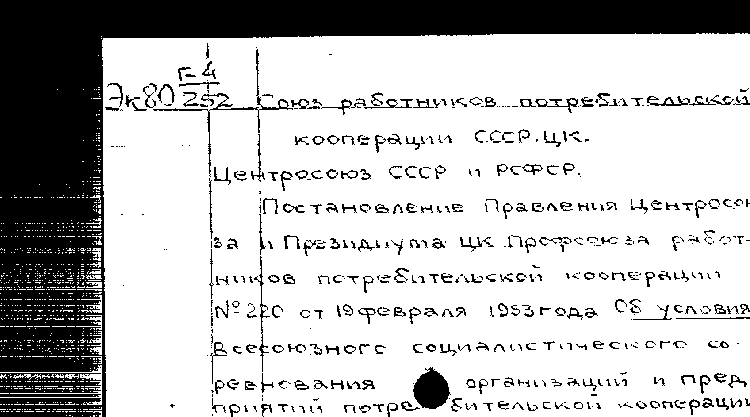 Г-4
Эк80 252 Союз работников потребительской
кооперации СССР. ЦК.
Центросоюз СССР и РСФСР.
Постановление Правления Центросою
за и Президиума ЦК Профсоюза работ-
ников потребительской кооперации
№ 220 от 19 февраля 1953 года Об условия
всесоюзного социалистического со-
ревнования организаций и пред
приятий потребительской кооперации